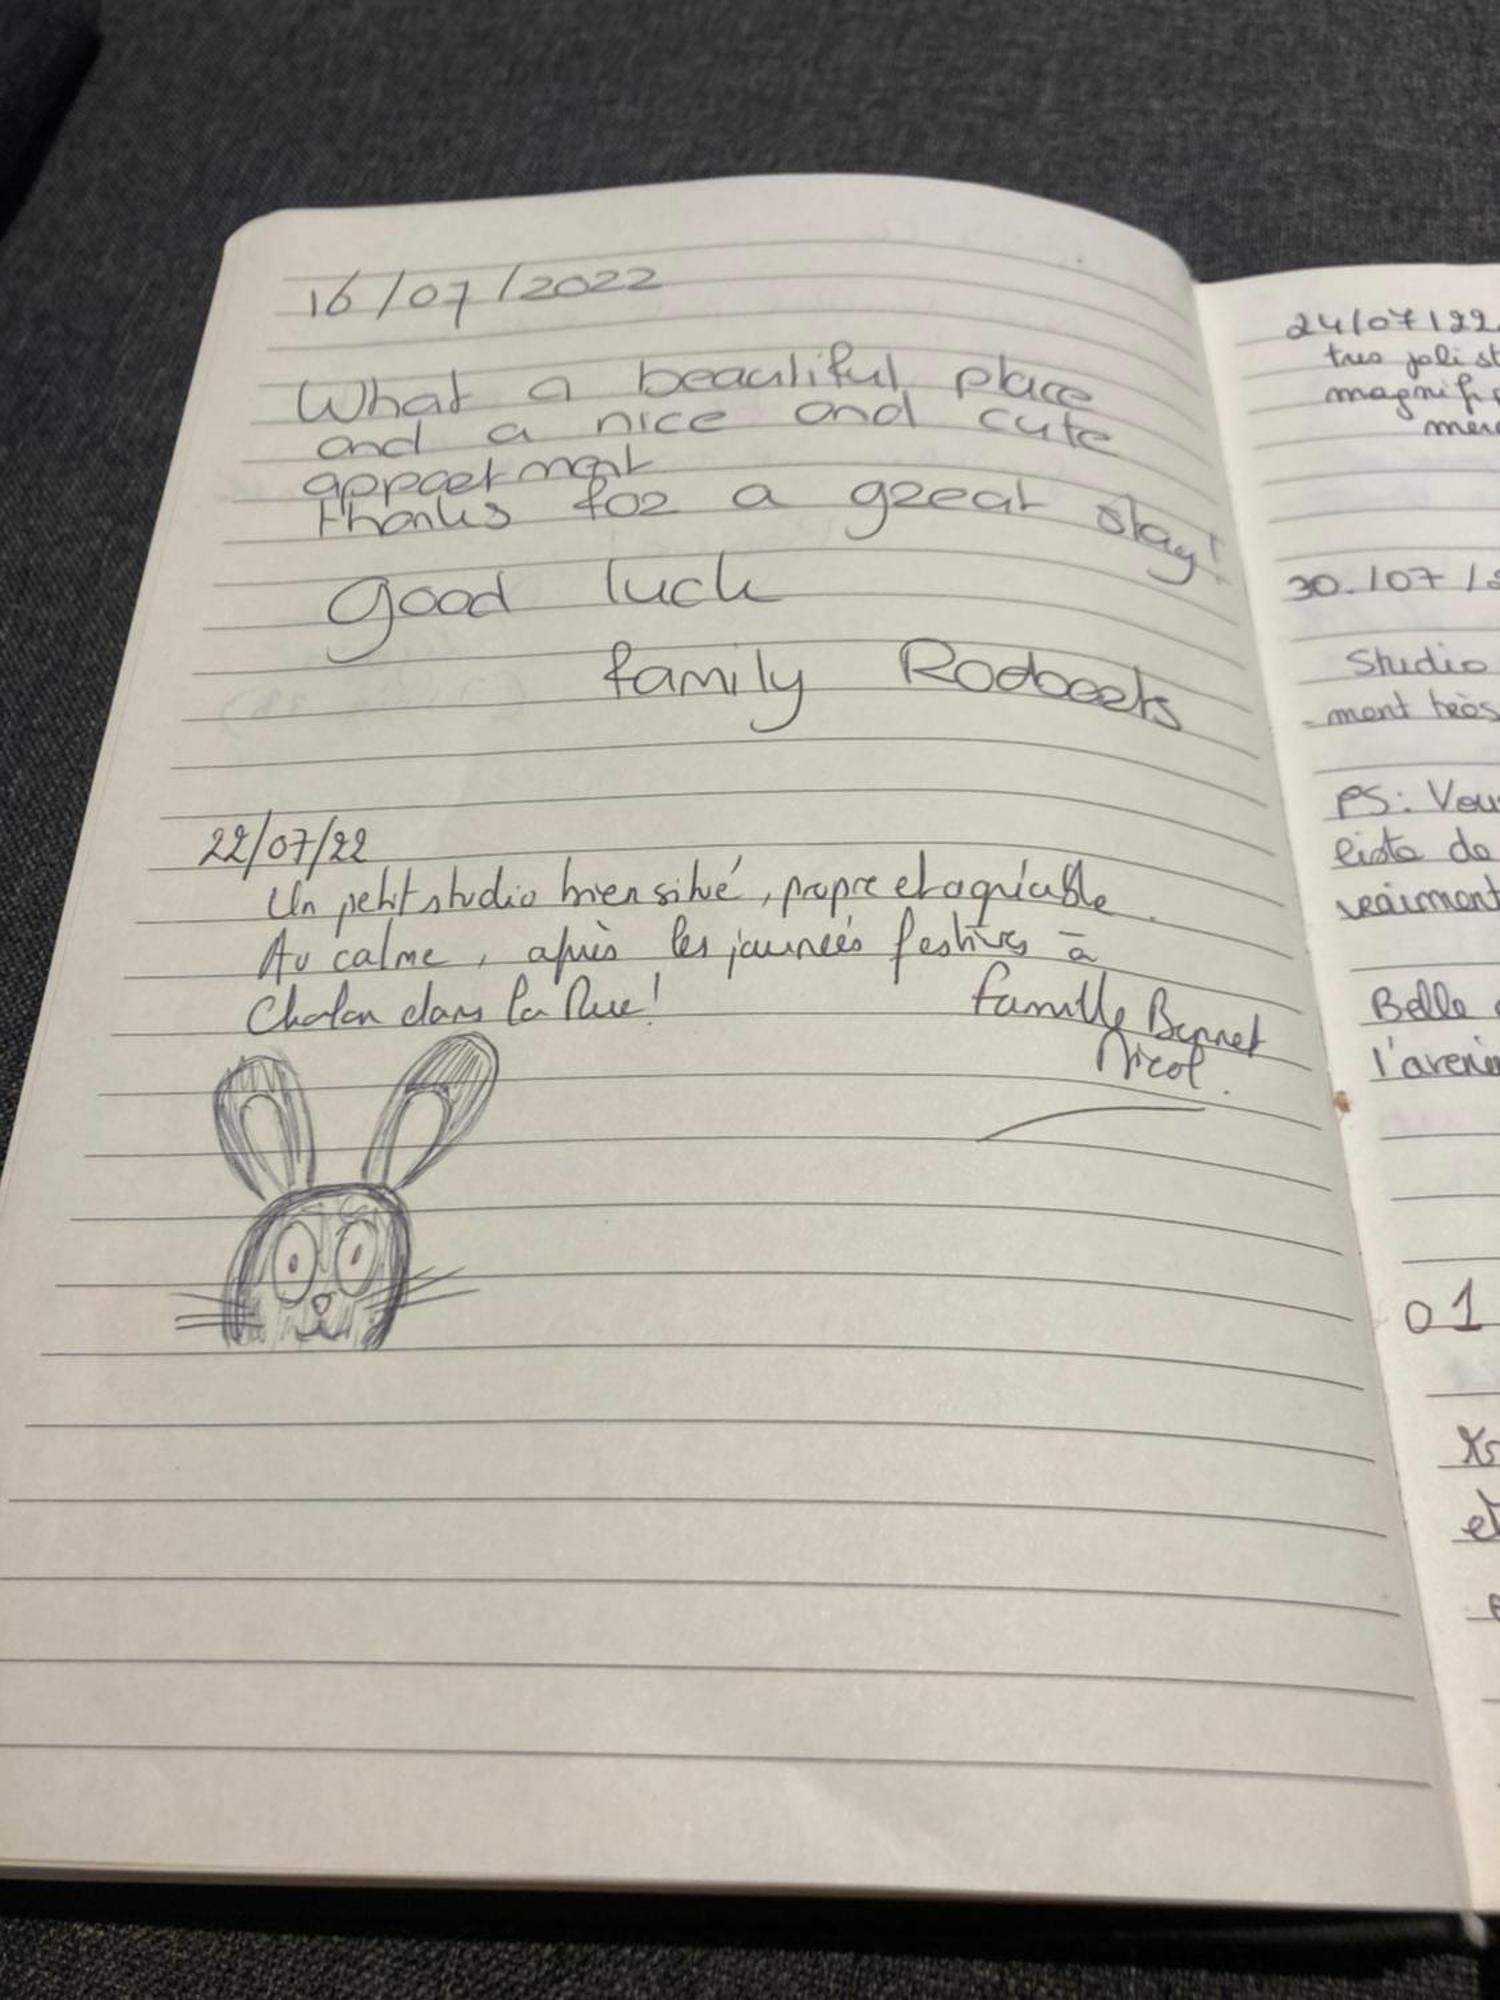 16/07/2022
What a beautiful place
and a nice and cute
appartment
thanks for a great stay!
good luck
family Rodoerts
22/07/22
Un petit studio bien situé, propre et agréable.
Au calme, après les journées festives à
Chalon dans la Rue!
famille Bonnet
Nicol.
24/07/22
tres joli st
magnifi
merc
30./07/2
Studio
-ment très
PS: Vous
liste de
vraiment
Belle
l'aveni
01
et